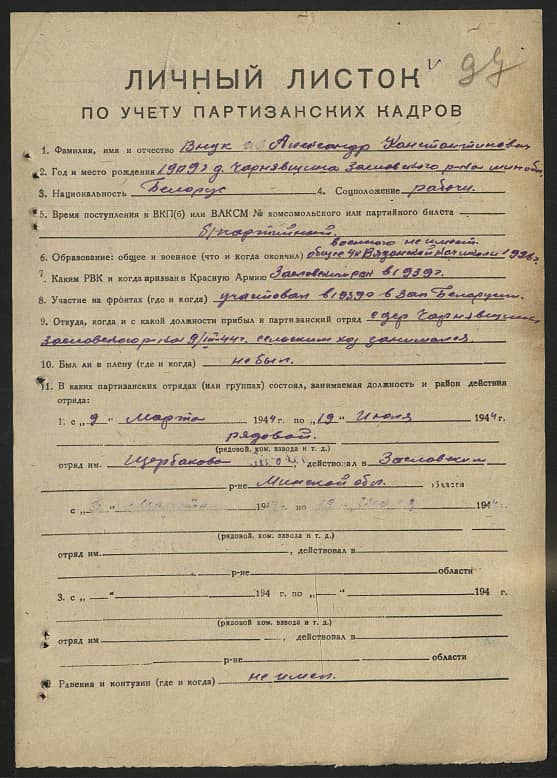 ЛИЧНЫЙ ЛИСТОК
ПО УЧЕТУ ПАРТИЗАНСКИХ КАДРОВ
1. Фамилия, имя и отчество Внук Александр Константинович
2. Год и место рождения 1909 г д. Чарнявщина Заславского р-на
3. Национальность Белорус 4. Соцположение рабочи.
5. Время поступления в ВКП(б) или ВЛКСМ № комсомольского или партийного билета
б/партийный.
военного не имеет.
6. Образование: общее и военное (что и когда окончил) общее 4 кл 1926 г
7. Каким РВК и когда призван в Красную Армию Заславским в 1939 г.
8. Участие на фронтах (где и когда) участвовал в 1939 в Зап Белорусии.
9. Откуда, когда и с какой должности прибыл в партизанский отряд с дер Чарнявщина
Заславского р-на 9/III-44 г. сельским хоз занимался.
10. Был ли в плену (где и когда) не был.
11. В каких партизанских отрядах (или группах) состоял, занимаемая должность и район действия
отряда:
1. с „9" Марта 1944 г. по „19" Июля 1944 г.
рядовой.
(рядовой, ком. взвода и т. д.)
отряд им. Щербакова, действовал в Заславском
р-не Минской обл. области
с 194 г. по 194 г.
(рядовой, ком. взвода и т. д.)
отряд им. , действовал в
р-не области
3. с „—" 194 г. по „—" 194 г.
(рядовой, ком. взвода и т. д.)
отряд им , действовал в
р-не области
Ранения и контузии (где и когда) не имел.